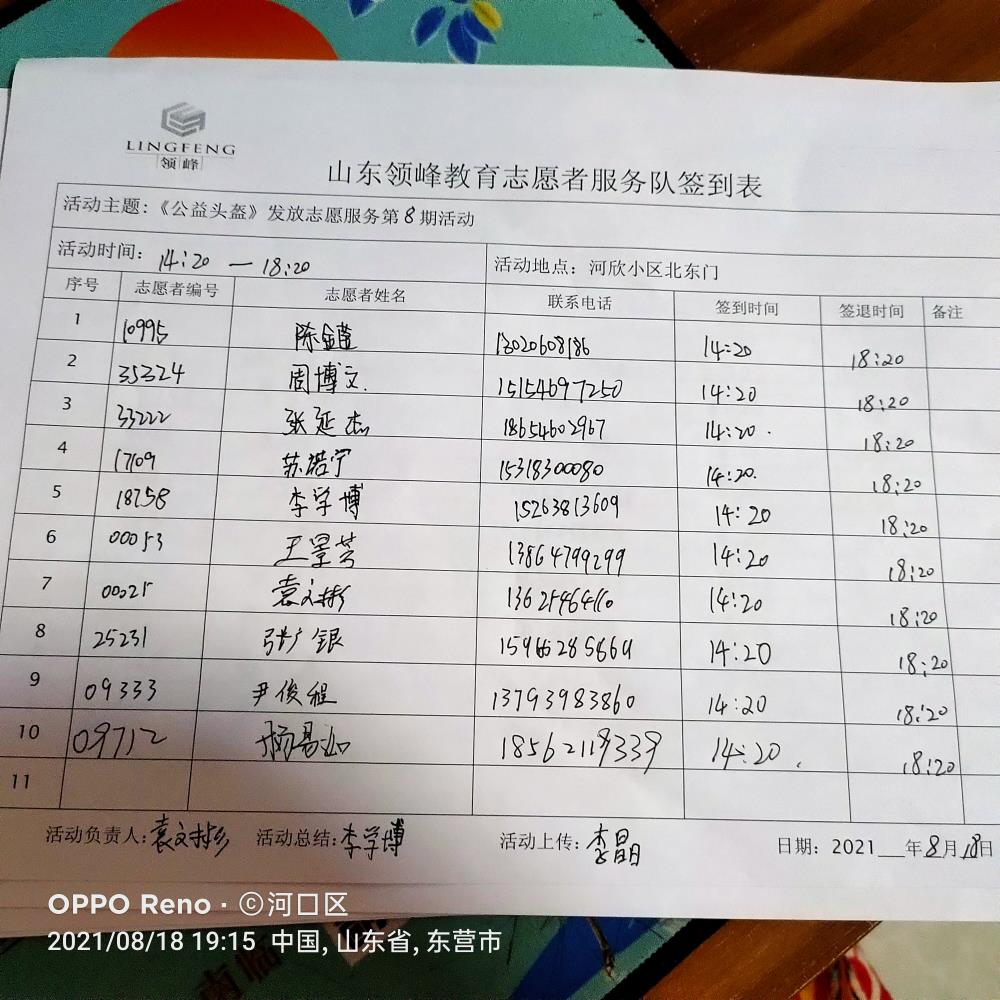 LINGFENG
领峰
山东领峰教育志愿者服务队签到表
活动主题：《公益头盔》发放志愿服务第8期活动
活动时间： 14:20 — 18:20 活动地点：河欣小区北东门
序号 志愿者编号 志愿者姓名 联系电话 签到时间 签退时间 备注
1 10995 陈金莲 13020608186 14:20 18:20
2 35324 周博文 15154697250 14:20 18:20
3 33222 张延杰 18654602967 14:20 18:20
4 17109 苏诺宁 15318300080 14:20 18:20
5 18758 李学博 15263813609 14:20 18:20
6 00053 13864799299 14:20 18:20
7 00025 袁文彬 14:20 18:20
8 25231 张广银 14:20 18:20
9 09333 尹俊程 13793983860 14:20 18:20
10 09712 18562119339 14:20 18:20
11
活动负责人：袁文彬 活动总结：李学博 活动上传：李晶 日期：2021___年8月18日
OPPO Reno · ©河口区
2021/08/18 19:15 中国, 山东省, 东营市